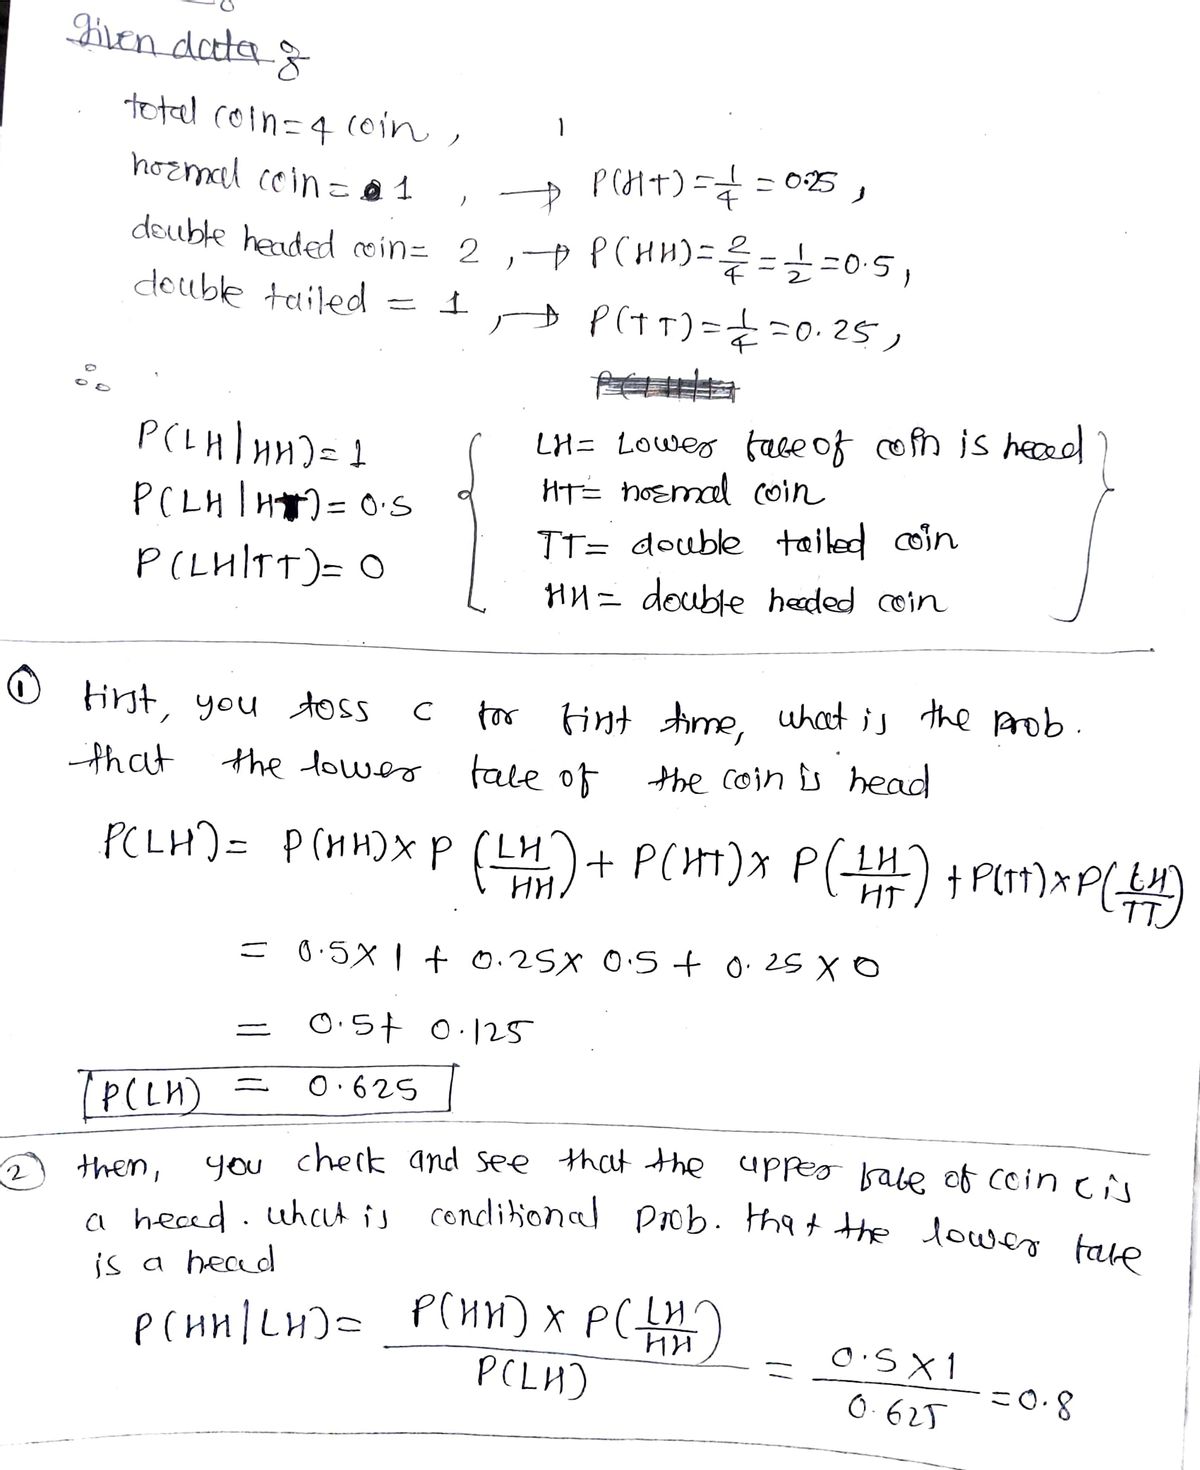 given data :
total coin = 4 coin ,
normal coin = 1 , → P(HT) = 1/4 = 0.25 ,
double headed coin = 2 , → P(HH) = 2/4 = 1/2 = 0.5 ,
double tailed = 1 , → P(TT) = 1/4 = 0.25 ,
∴
P(LH|HH) = 1
P(LH|HT) = 0.5
P(LH|TT) = 0
LH = Lower face of coin is head
HT = normal coin
TT = double tailed coin
HH = double heded coin
① first, you toss C for first time, what is the prob.
that the lower face of the coin is head
P(LH) = P(HH) x P(LH/HH) + P(HT) x P(LH/HT) + P(TT) x P(LH/TT)
= 0.5 x 1 + 0.25 x 0.5 + 0.25 x 0
= 0.5 + 0.125
P(LH) = 0.625
② then, you check and see that the upper face of coin C is
a head. what is conditional prob. that the lower face
is a head
P(HH|LH) = P(HH) x P(LH/HH) / P(LH) = 0.5 x 1 / 0.625 = 0.8